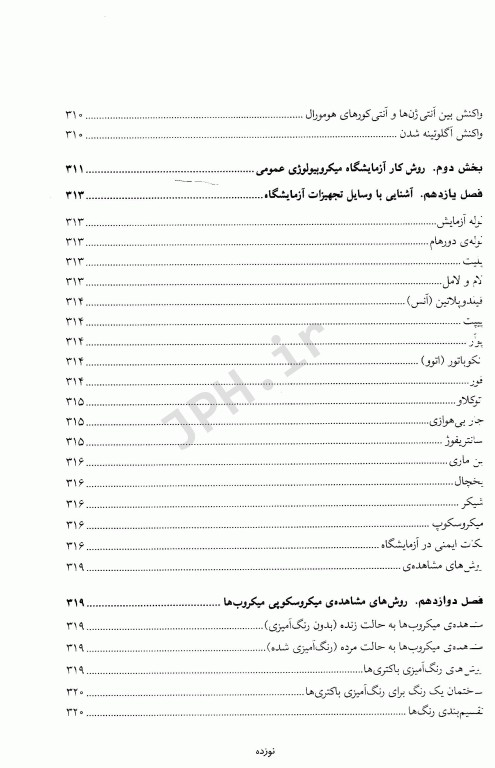 واکنش بین آنتی‌ژن‌ها و آنتی‌کورهای هومورال ..... ۳۱۰
واکنش آگلوتینه شدن ..... ۳۱۰
بخش دوم. روش کار آزمایشگاه میکروبیولوژی عمومی ..... ۳۱۱
فصل یازدهم. آشنایی با وسایل تجهیزات آزمایشگاه ..... ۳۱۳
لوله آزمایش ..... ۳۱۳
لوله‌ی دورهام ..... ۳۱۳
پلیت ..... ۳۱۳
لام و لامل ..... ۳۱۳
فیلدوپلاتین (آنس) ..... ۳۱۴
پیپت ..... ۳۱۴
پوآر ..... ۳۱۴
انکوباتور (اتوو) ..... ۳۱۴
فور ..... ۳۱۴
اتوکلاو ..... ۳۱۵
جار بی‌هوازی ..... ۳۱۵
سانتریفوژ ..... ۳۱۵
بن ماری ..... ۳۱۶
یخچال ..... ۳۱۶
شیکر ..... ۳۱۶
میکروسکوپ ..... ۳۱۶
نکات ایمنی در آزمایشگاه ..... ۳۱۶
روش‌های مشاهده‌ی ..... ۳۱۹
فصل دوازدهم. روش‌های مشاهده‌ی میکروسکوپی میکروب‌ها ..... ۳۱۹
مشاهده‌ی میکروب‌ها به حالت زنده (بدون رنگ‌آمیزی) ..... ۳۱۹
مشاهده‌ی میکروب‌ها به حالت مرده (رنگ‌آمیزی شده) ..... ۳۱۹
روش‌های رنگ‌آمیزی باکتری‌ها ..... ۳۱۹
ساختمان یک رنگ برای رنگ‌آمیزی باکتری‌ها ..... ۳۲۰
تقسیم‌بندی رنگ‌ها ..... ۳۲۰
نوزده
JPH.ir